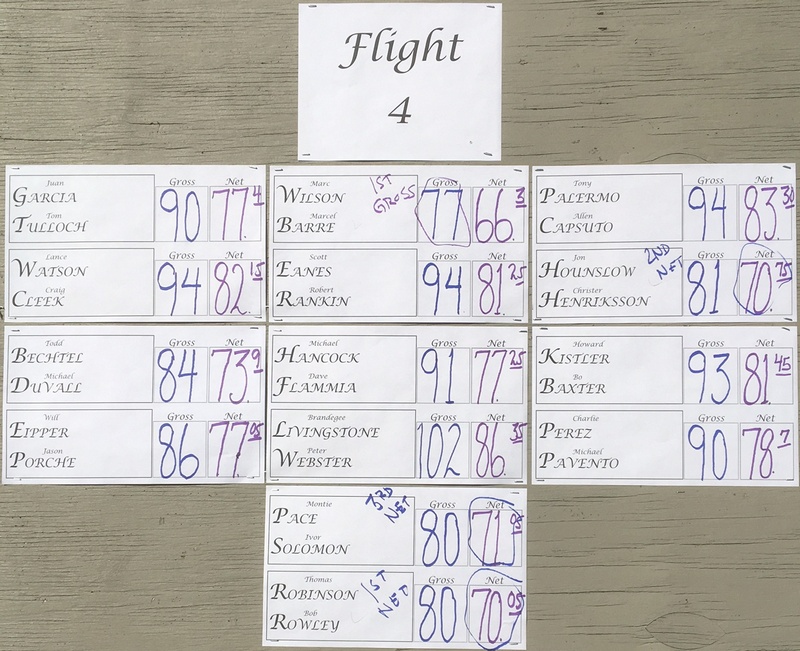 Flight
4
Juan
GARCIA
Tom
TULLOCH
Gross
90
Net
77.4
Lance
WATSON
Craig
CLEEK
94
82.15
Marc
WILSON
Marcel
BARRE
1ST
GROSS
Gross
77
Net
66.3
Scott
EANES
Robert
RANKIN
94
81.25
Tony
PALERMO
Allen
CAPSUTO
Gross
94
Net
83.30
Jon
HOUNSLOW
Christer
HENRIKSSON
2ND
NET
Gross
81
Net
70.75
Todd
BECHTEL
Michael
DUVALL
Gross
84
Net
73.9
Will
EIPPER
Jason
PORCHE
Gross
86
Net
77.05
Michael
HANCOCK
Dave
FLAMMIA
Gross
91
Net
77.25
Brandegee
LIVINGSTONE
Peter
WEBSTER
Gross
102
Net
86.35
Howard
KISTLER
Bo
BAXTER
Gross
93
Net
81.45
Charlie
PEREZ
Michael
PAVENTO
Gross
90
Net
78.7
Montie
PACE
Ivor
SOLOMON
3RD
NET
Gross
80
Net
71.05
Thomas
ROBINSON
Bob
ROWLEY
1ST
NET
Gross
80
Net
70.05